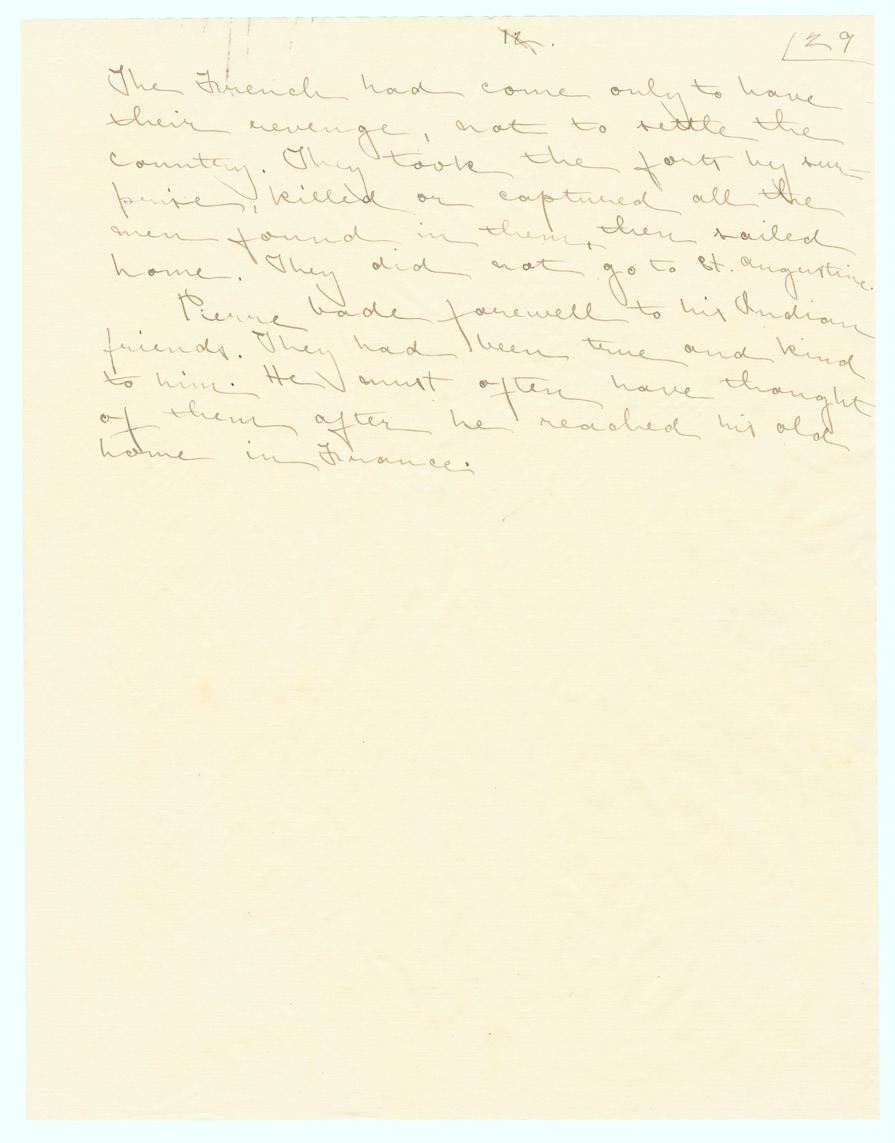 29
The French had come only to have
their revenge, not to settle the
country. They took the forts by sur-
prise, killed or captured all the
men found in them, then sailed
home. They did not go to St. Augustine.
Pierre bade farewell to his Indian
friends. They had been true and kind
to him. He must often have thought
of them after he reached his old
home in France.